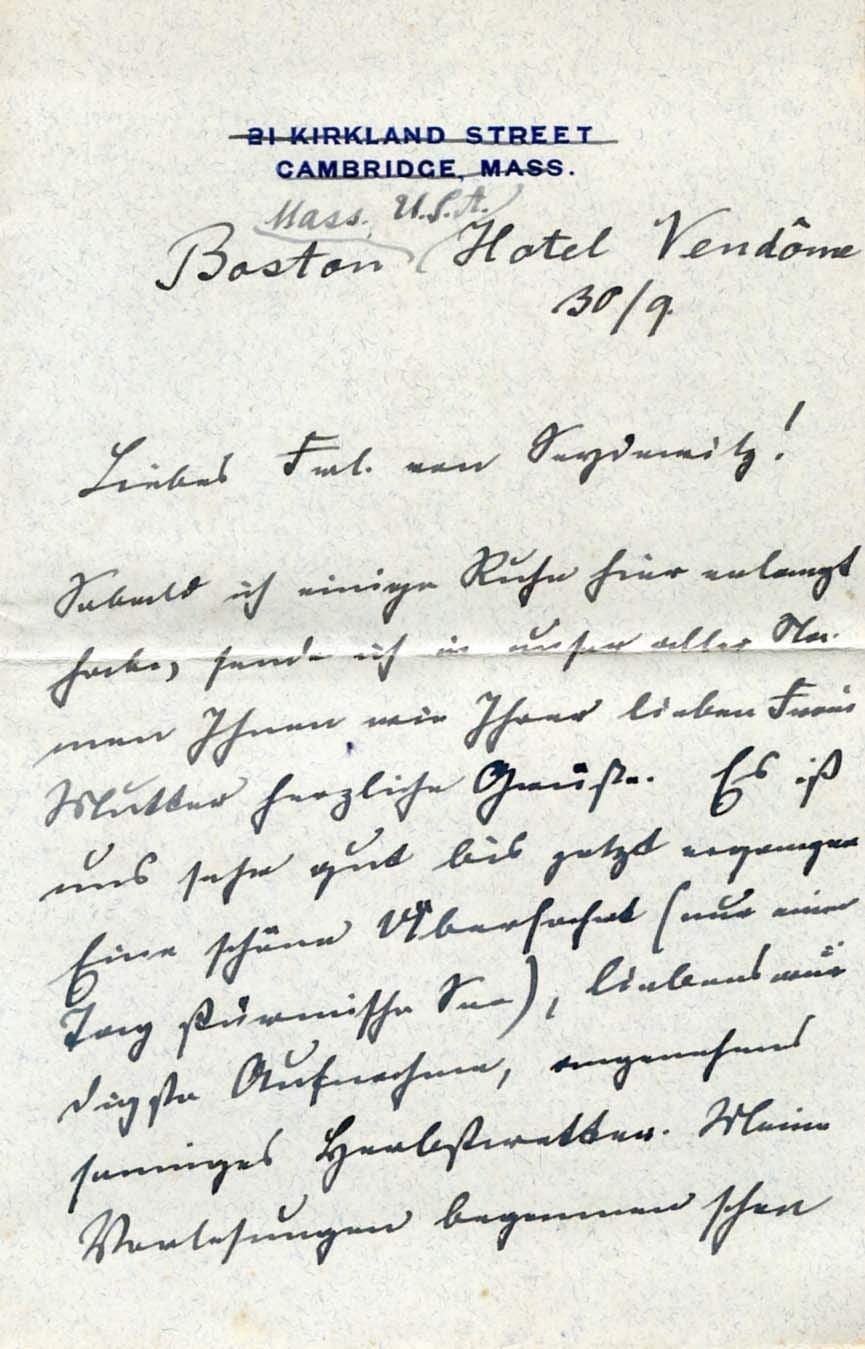 21 KIRKLAND STREET
CAMBRIDGE, MASS.
Mass. U.S.A.
Boston Hotel Vendôme
30/9.
Liebes Frl. von Seydewitz!
Sobald ich einige Ruhe hier erlangt
habe, sende ich in unser aller Na-
men Ihnen wie Ihrer lieben Frau
Mutter herzliche Grüße. Es ist
uns sehr gut bis jetzt ergangen
Eine schöne Überfahrt (nur einen
Tag stürmische See), liebenswür
digste Aufnahme, angenehmes
sonniges Herbstwetter. Meine
Vorlesungen begannen schon